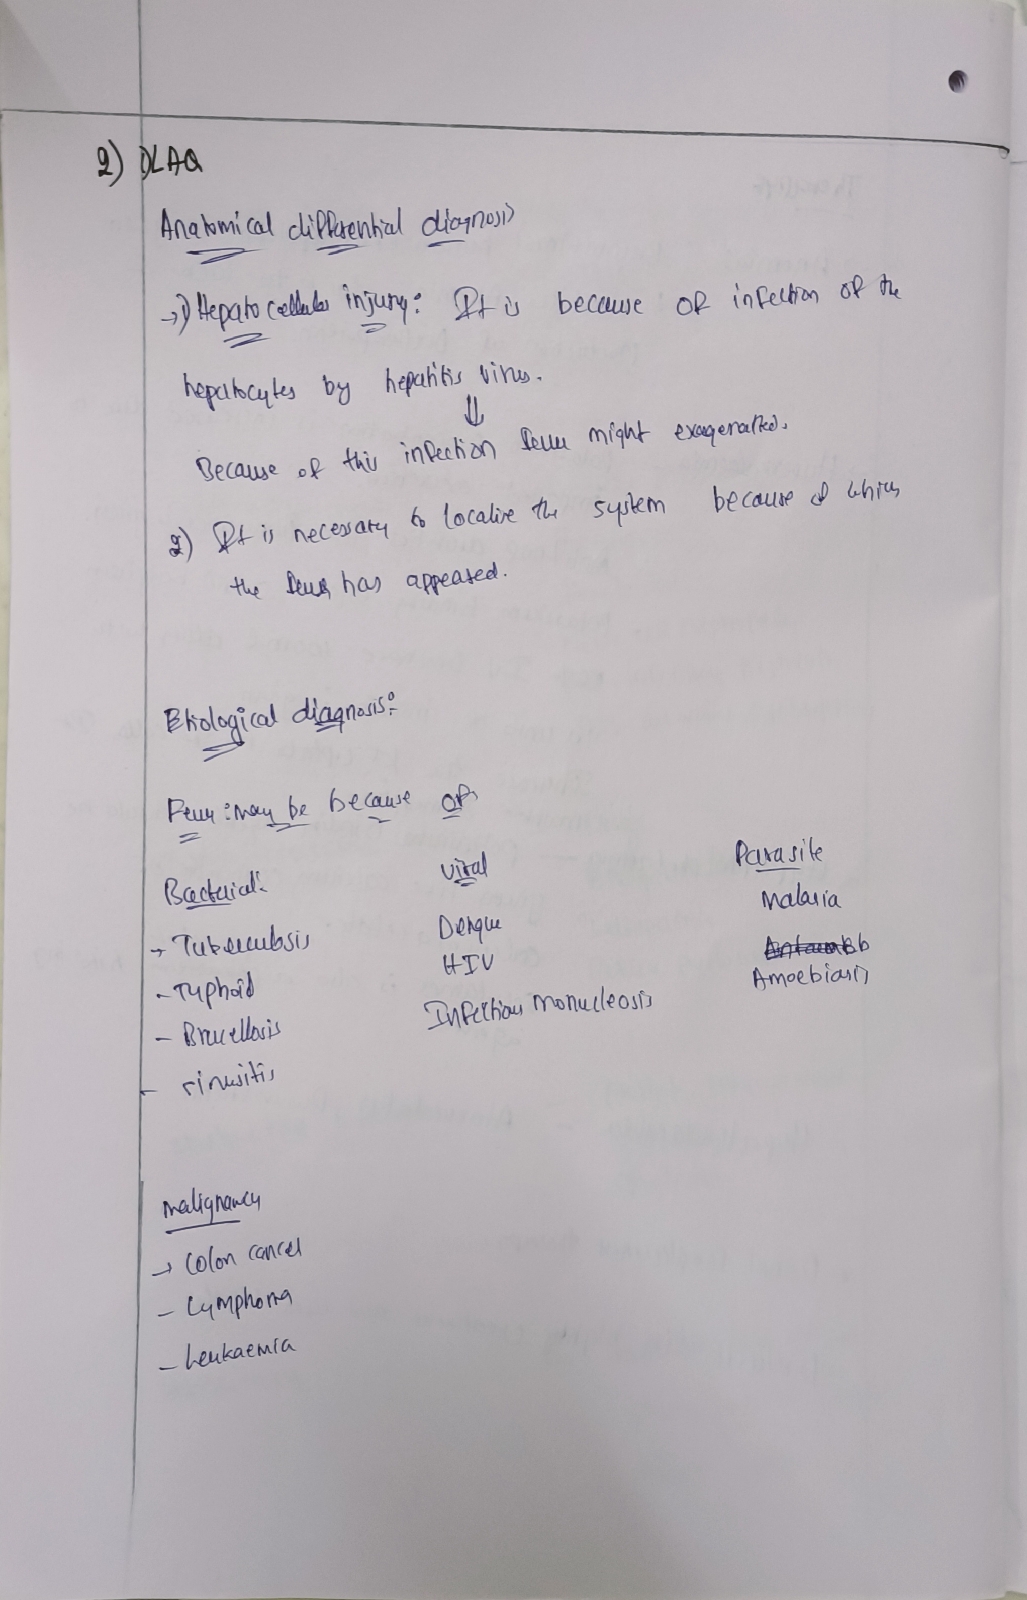 2) DLAQ
Anatomical differential diagnosis
→1) Hepato cellular injury: It is because of infection of the
hepatocytes by hepatitis virus.
⇓
Because of this infection fever might exagerated.
2) It is necessary to localise the system because of which
the fever has appeared.
Etiological diagnosis:
Fever: may be because of
Bacterial:
→ Tuberculosis
- Typhoid
- Brucellosis
- sinusitis
viral
Dengue
HIV
Infectious monucleosis
Parasite
Malaria
Amoebiasis
malignancy
→ Colon cancer
- Lymphoma
- Leukaemia